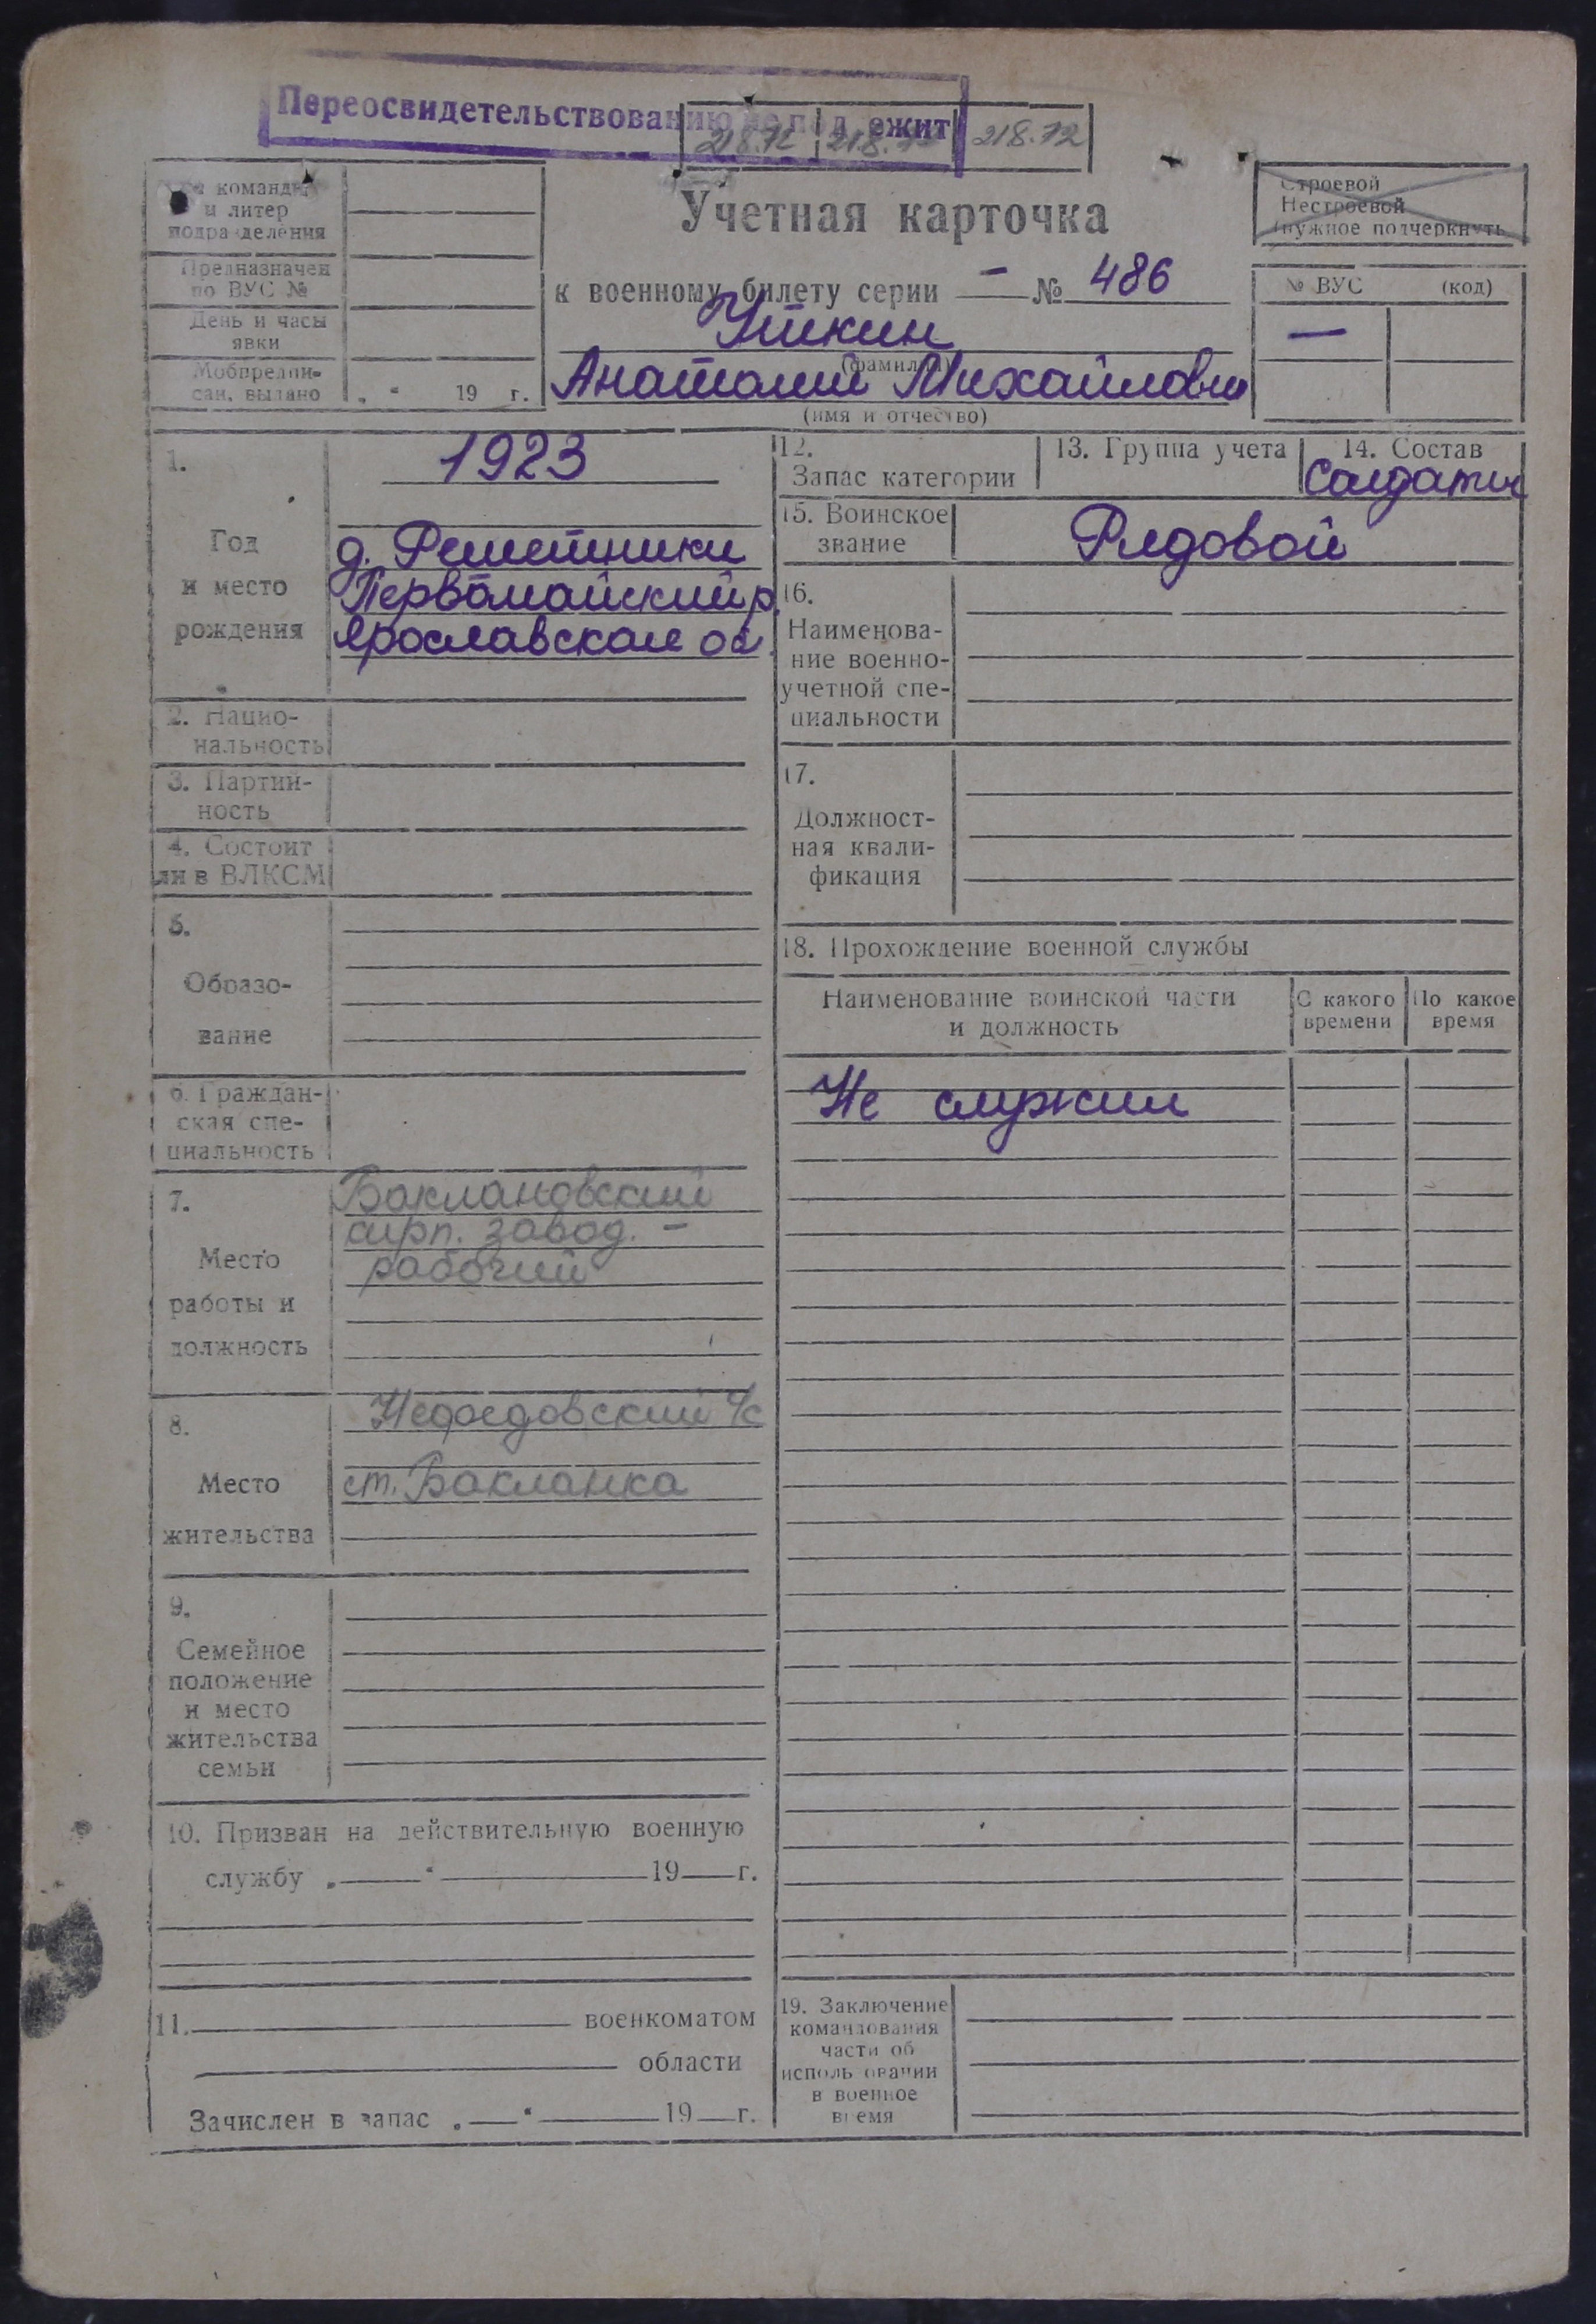 Переосвидетельствованию не подлежит
218.72 218.72 218.72
№ команды
и литер
подразделения
Предназначен
по ВУС №
День и часы
явки
Мобпредпи-
сан. выдано „ “ 19 г.
Учетная карточка
к военному билету серии — № 486
Уткин
(фамилия)
Анатолий Михайлович
(имя и отчество)
Строевой
Нестроевой
(нужное подчеркнуть
№ ВУС (код)
—
1.
Год
и место
рождения
1923
д. Решетники
Первомайский р.
Ярославская об.
2. Нацио-
нальность
3. Партий-
ность
4. Состоит
ли в ВЛКСМ
5.
Образо-
вание
6. Граждан-
ская спе-
циальность
7.
Место
работы и
должность
Баклановский
кирп. завод. –
рабочий
8.
Место
жительства
Нефедовский с/с
ст. Бакланка
9.
Семейное
положение
и место
жительства
семьи
10. Призван на действительную военную
службу „ “ 19 г.
11. военкоматом
области
Зачислен в запас „ “ 19 г.
12.
Запас категории
13. Группа учета
14. Состав
Солдаты
15. Воинское
звание
Рядовой
16.
Наименова-
ние военно-
учетной спе-
циальности
17.
Должност-
ная квали-
фикация
18. Прохождение военной службы
Наименование воинской части
и должность
С какого
времени
По какое
время
Не служил
19. Заключение
командования
части об
использовании
в военное
время